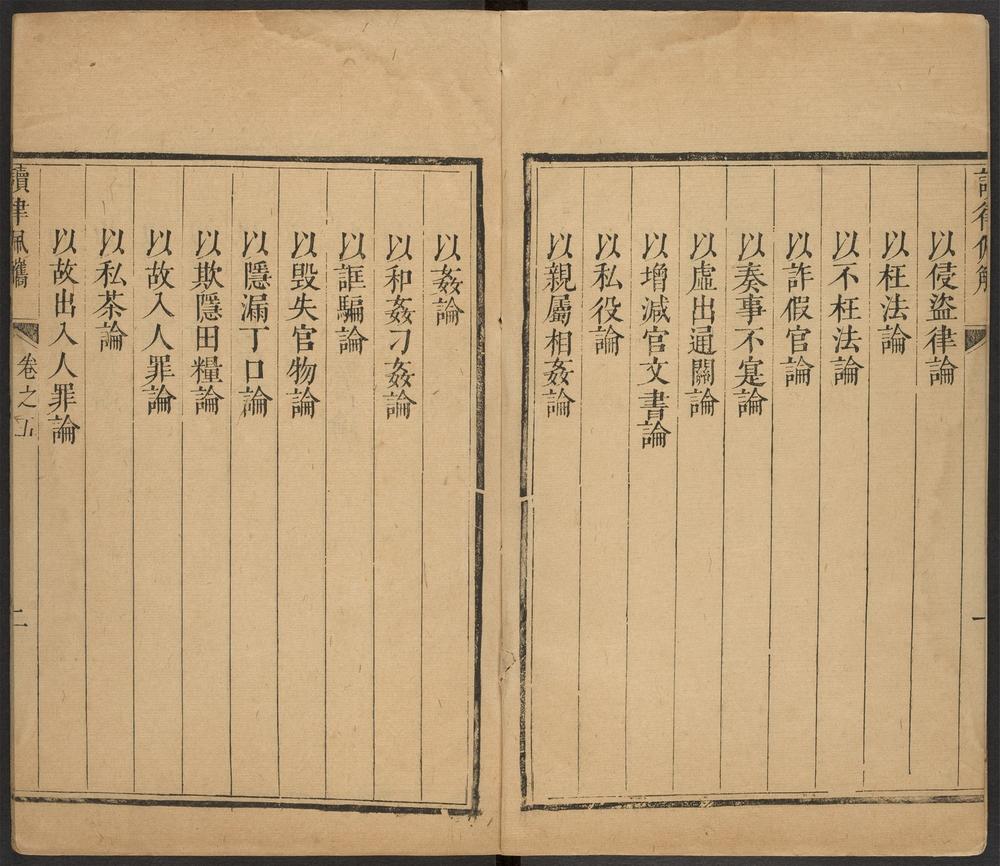 以侵盜律論
以枉法論
以不枉法論
以詐假官論
以奏事不寔論
以虛出通關論
以增減官文書論
以私役論
以親屬相姦論
以姦論
以和姦刁姦論
以誆騙論
以毀失官物論
以隱漏丁口論
以欺隱田糧論
以故入人罪論
以私茶論
以故出入人罪論
讀律佩觿 卷之五 二